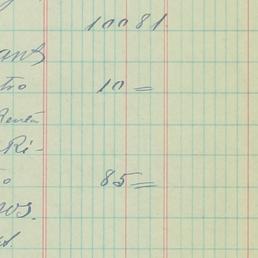 10081
ant
tro 10=
Renta
Ri-
o 85=
os.